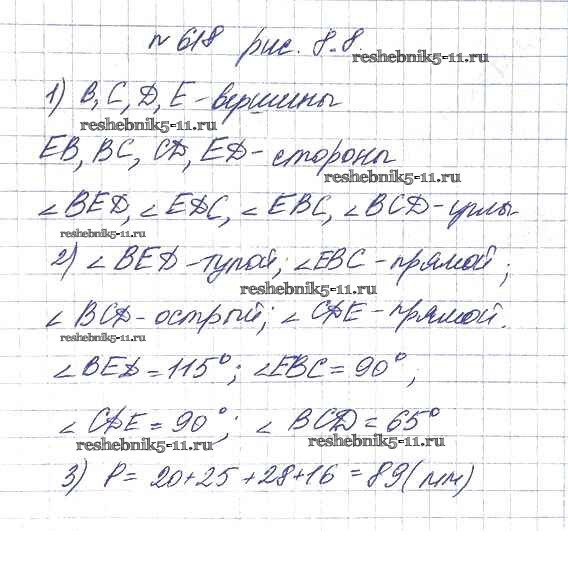 № 618 рис. 8.8.
reshebnik5-11.ru
1) В, С, D, Е - вершины
reshebnik5-11.ru
ЕВ, ВС, CD, ED - стороны
reshebnik5-11.ru
∠BED, ∠EDC, ∠EBC, ∠BCD - углы
reshebnik5-11.ru
2) ∠BED - тупой; ∠EBC - прямой;
reshebnik5-11.ru
∠BCD - острый; ∠CDE - прямой.
reshebnik5-11.ru
∠BED = 115°; ∠EBC = 90°;
∠CDE = 90°; ∠BCD = 65°
reshebnik5-11.ru reshebnik5-11.ru
3) P = 20+25+28+16 = 89 (мм)